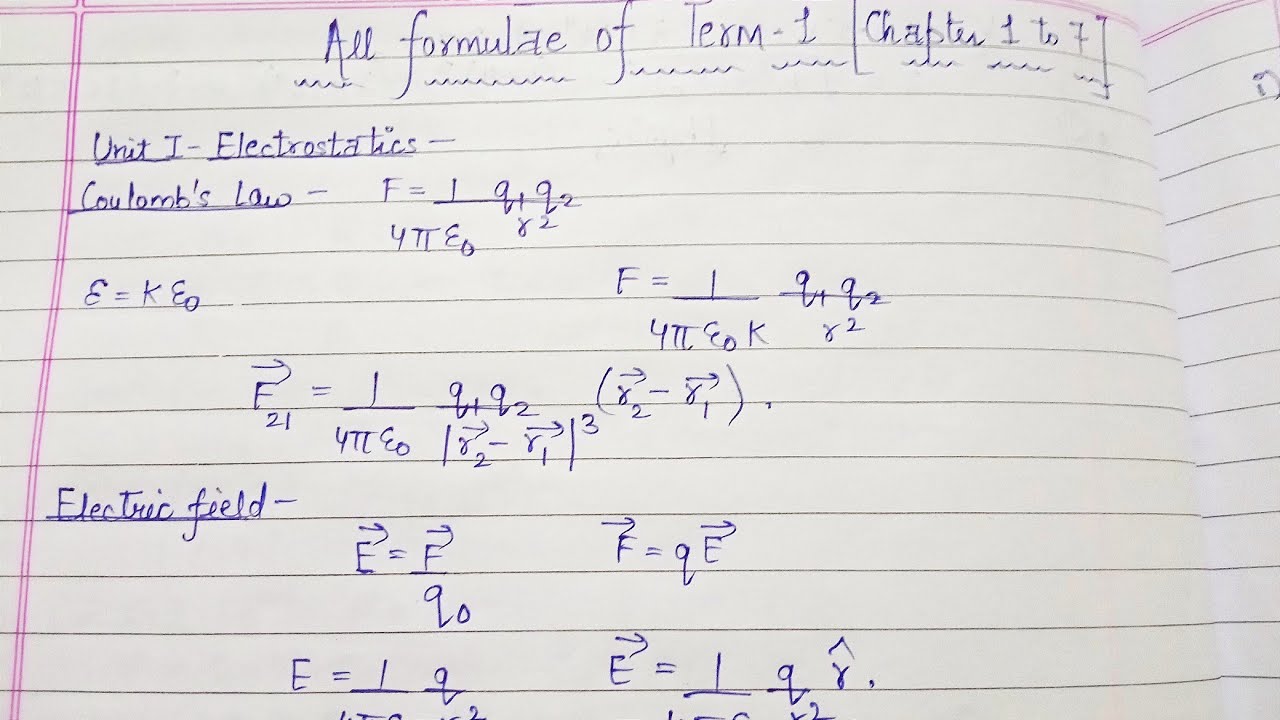 All formulae of Term-1 [Chapter 1 to 7]
Unit I - Electrostatics -
Coulomb's Law - F = 1/4πε₀ q₁q₂/r²
ε = K ε₀ F = 1/4πε₀K q₁q₂/r²
F⃗₂₁ = 1/4πε₀ q₁q₂/|r⃗₂ - r⃗₁|³ (r⃗₂ - r⃗₁).
Electric field -
E⃗ = F⃗/q₀ F⃗ = qE⃗
E = 1/4πε q/r² E⃗ = 1/4πε q/r² r̂.